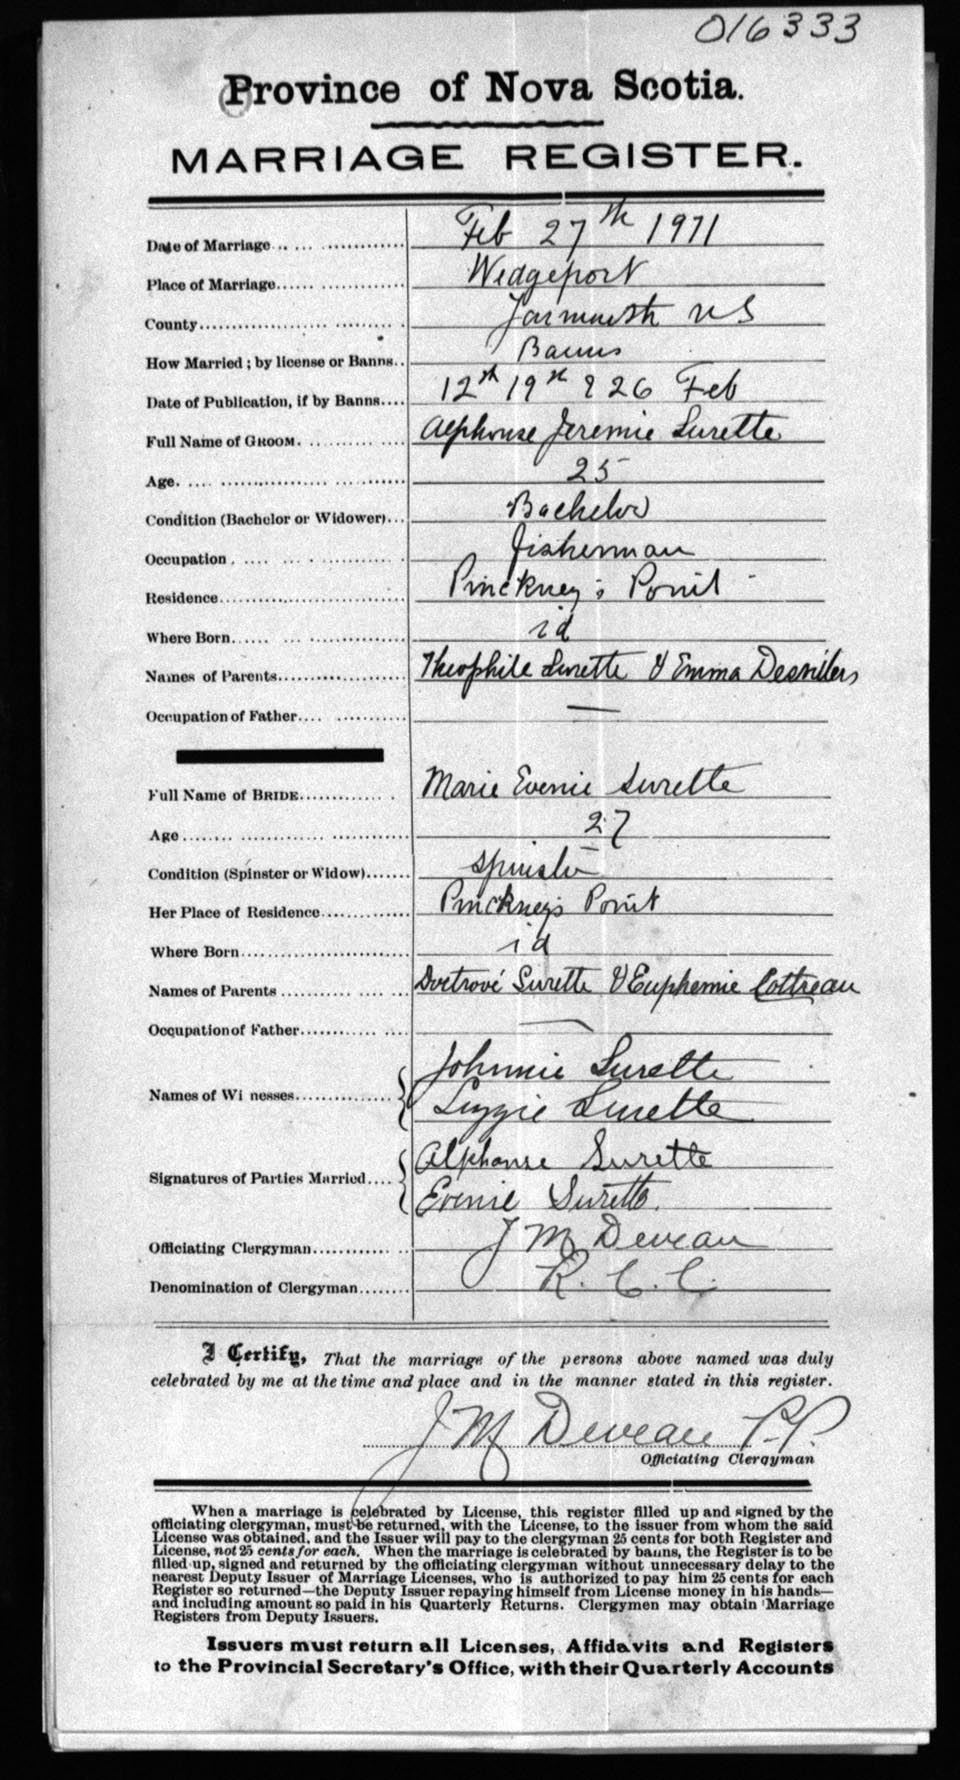 016333
Province of Nova Scotia.
MARRIAGE REGISTER.
Date of Marriage Feb 27th 1911
Place of Marriage Wedgeport
County Yarmouth N S
How Married ; by license or Banns Banns
Date of Publication, if by Banns 12th 19th & 26 Feb
Full Name of GROOM Alphonse Jeremie Surette
Age 25
Condition (Bachelor or Widower) Bachelor
Occupation fisherman
Residence Pinckney's Point
Where Born id
Names of Parents Theophile Surette & Emma Desvillers
Occupation of Father —
Full Name of BRIDE Marie Evenie Surette
Age 27
Condition (Spinster or Widow) Spinster
Her Place of Residence Pinckney's Point
Where Born id
Names of Parents Surette & Euphemie Cottreau
Occupation of Father —
Names of Wi nesses Johnnie Surette
Lizzie Surette
Signatures of Parties Married Alphonse Surette
Evenie Surette.
Officiating Clergyman J M Deveau
Denomination of Clergyman R. C. C.
I Certify, That the marriage of the persons above named was duly
celebrated by me at the time and place and in the manner stated in this register.
J M Deveau P.P.
Officiating Clergyman
When a marriage is celebrated by License, this register filled up and signed by the
officiating clergyman, must be returned, with the License, to the issuer from whom the said
License was obtained, and the Issuer will pay to the clergyman 25 cents for both Register and
License, not 25 cents for each. When the marriage is celebrated by banns, the Register is to be
filled up, signed and returned by the officiating clergyman without unnecessary delay to the
nearest Deputy Issuer of Marriage Licenses, who is authorized to pay him 25 cents for each
Register so returned—the Deputy Issuer repaying himself from License money in his hands—
and including amount so paid in his Quarterly Returns. Clergymen may obtain Marriage
Registers from Deputy Issuers.
Issuers must return all Licenses, Affidavits and Registers
to the Provincial Secretary's Office, with their Quarterly Accounts